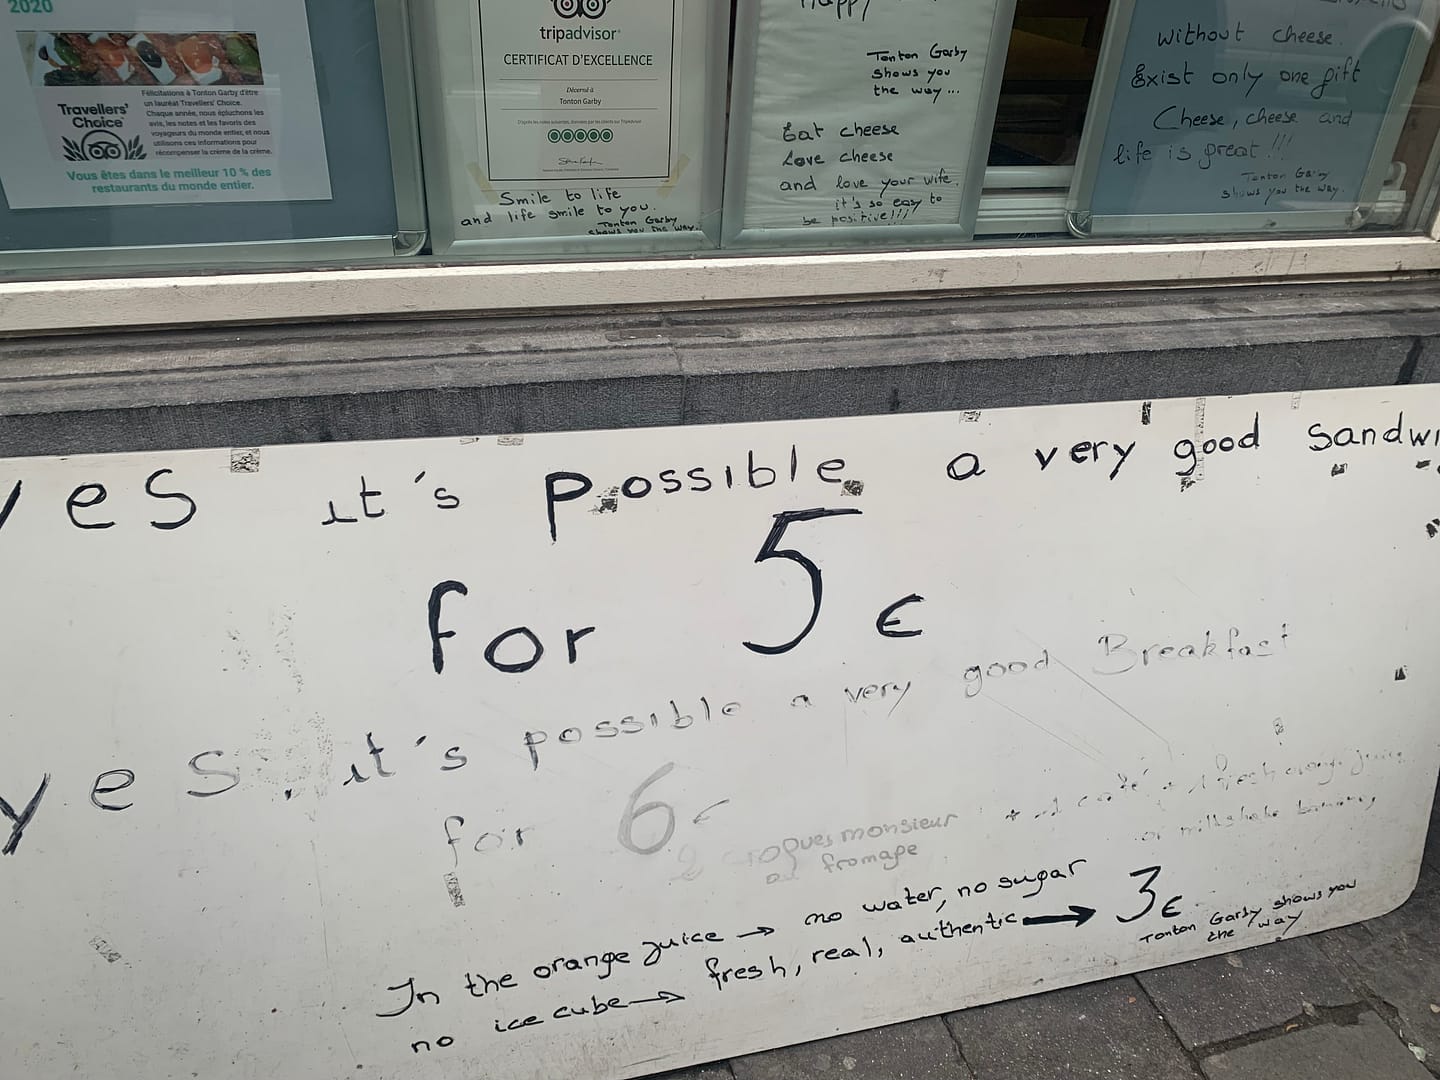 2020
Travellers'
Choice
Félicitations à Tonton Garby d'être
un lauréat Travellers' Choice.
Chaque année, nous épluchons les
avis, les notes et les favoris des
voyageurs du monde entier, et nous
utilisons ces informations pour
récompenser la crème de la crème.
Vous êtes dans le meilleur 10 % des
restaurants du monde entier.
tripadvisor
CERTIFICAT D'EXCELLENCE
Décerné à
Tonton Garby
Smile to life
and life smile to you.
Tonton Garby
shows you the way.
Happy
Tonton Garby
shows you
the way...
Eat cheese
Love cheese
and love your wife.
it's so easy to
be positive!!!
without cheese.
Exist only one gift
Cheese, cheese and
life is great!!!
Tonton Garby
shows you the way.
yes it's possible a very good sandwi
for 5 €
yes, it's possible a very good Breakfast
for 6 €
2 croques monsieur
au fromage
+ 1 café + 1 fresh orange juice
or milkshake banana,
In the orange juice → no water, no sugar
no ice cube → fresh, real, authentic → 3€
Tonton Garby shows you
the way